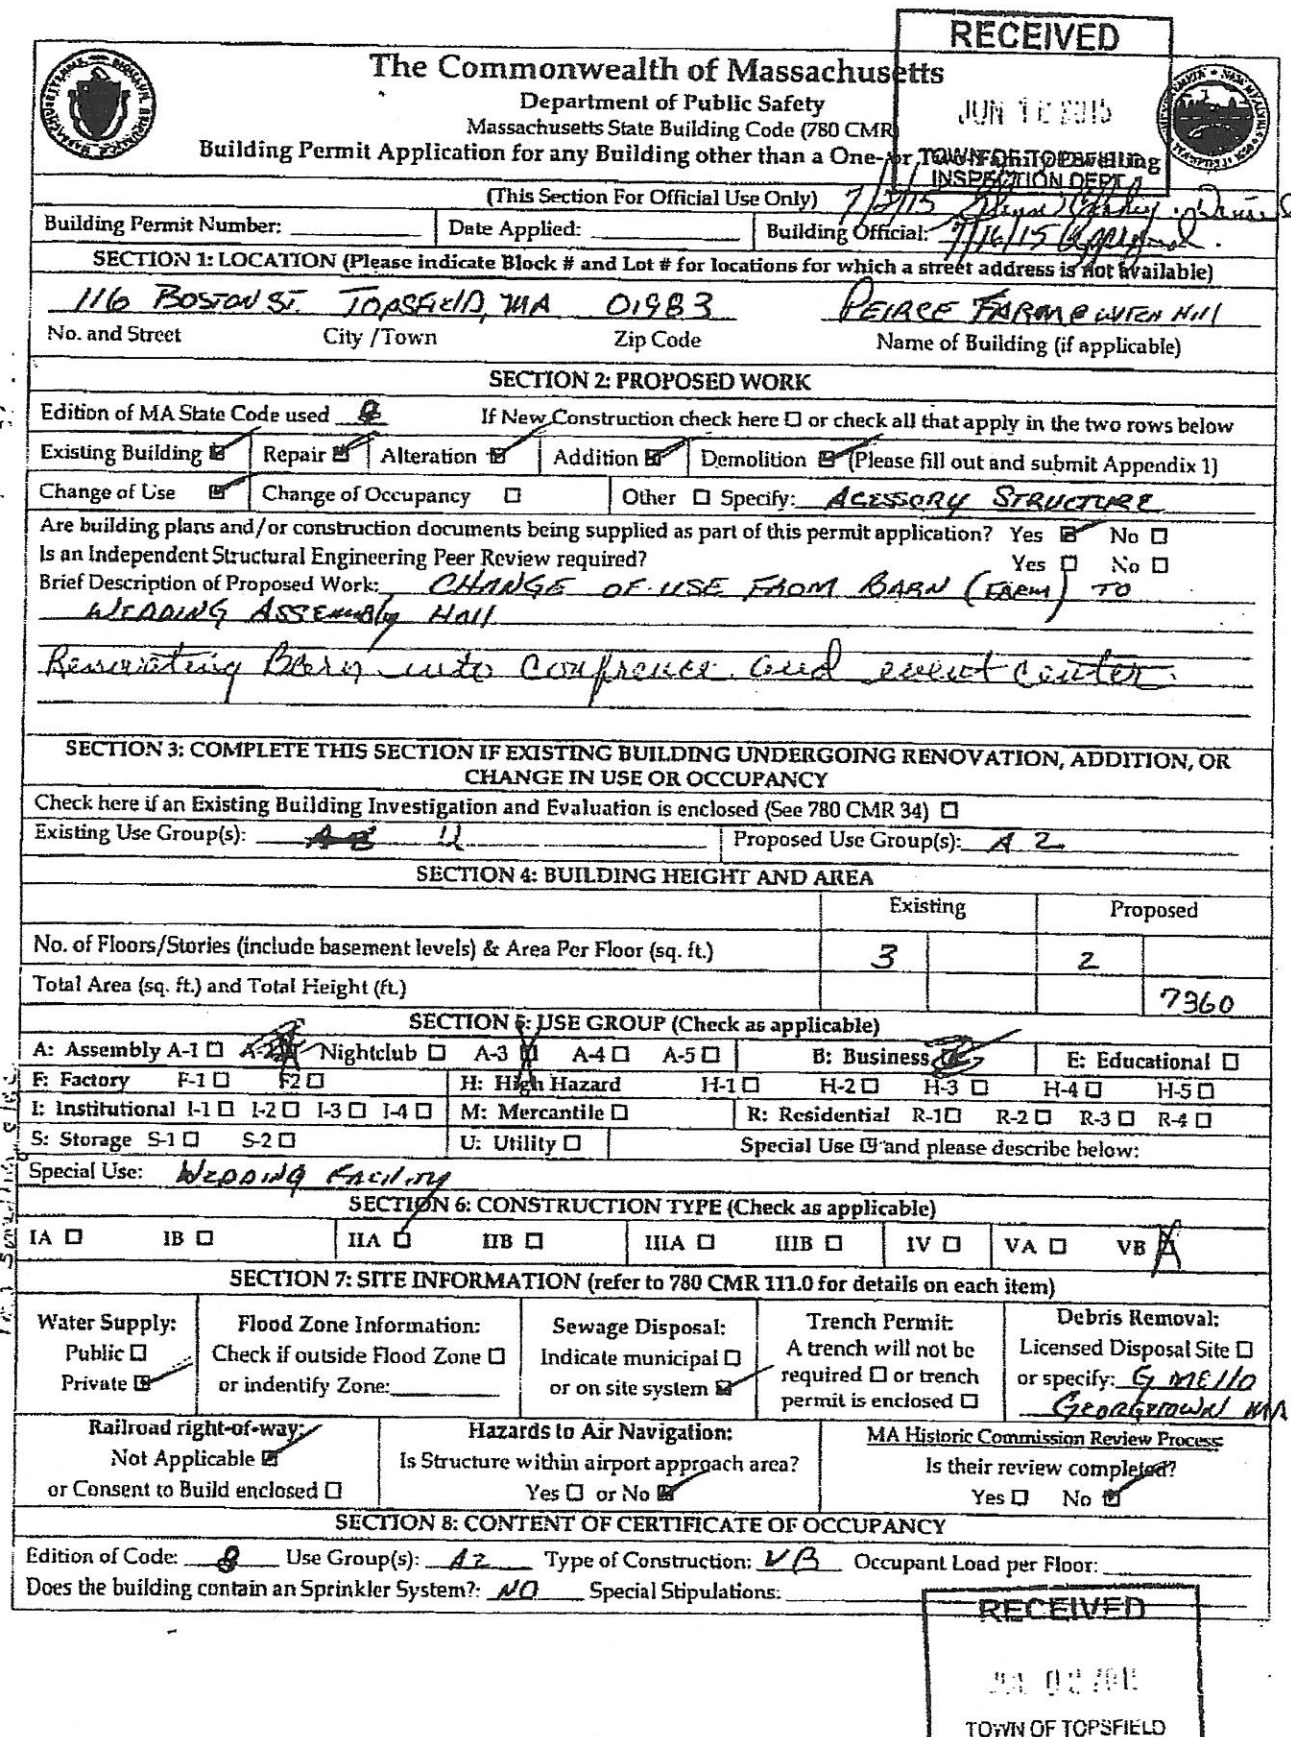 RECEIVED
The Commonwealth of Massachusetts
Department of Public Safety
JUN 12 2015
Massachusetts State Building Code (780 CMR)
Building Permit Application for any Building other than a One- or Two-Family Dwelling
TOWN OF TOPSFIELD
INSPECTION DEPT.
(This Section For Official Use Only) 7/2/15
Building Permit Number: Date Applied: Building Official: 7/16/15
SECTION 1: LOCATION (Please indicate Block # and Lot # for locations for which a street address is not available)
116 BOSTON ST. TOPSFIELD, MA 01983 PEIRCE FARM @ WITCH HILL
No. and Street City /Town Zip Code Name of Building (if applicable)
SECTION 2: PROPOSED WORK
Edition of MA State Code used 8 If New Construction check here ☐ or check all that apply in the two rows below
Existing Building ☑ Repair ☑ Alteration ☑ Addition ☑ Demolition ☑ (Please fill out and submit Appendix 1)
Change of Use ☑ Change of Occupancy ☐ Other ☐ Specify: ACESSORY STRUCTURE
Are building plans and/or construction documents being supplied as part of this permit application? Yes ☑ No ☐
Is an Independent Structural Engineering Peer Review required? Yes ☐ No ☐
Brief Description of Proposed Work: CHANGE OF USE FROM BARN (FARM) TO
WEDDING ASSEMBLY HALL
Renovating Barn into Confrence and event center.
SECTION 3: COMPLETE THIS SECTION IF EXISTING BUILDING UNDERGOING RENOVATION, ADDITION, OR
CHANGE IN USE OR OCCUPANCY
Check here if an Existing Building Investigation and Evaluation is enclosed (See 780 CMR 34) ☐
Existing Use Group(s): U Proposed Use Group(s): A 2
SECTION 4: BUILDING HEIGHT AND AREA
Existing Proposed
No. of Floors/Stories (include basement levels) & Area Per Floor (sq. ft.) 3 2
Total Area (sq. ft.) and Total Height (ft.) 7360
SECTION 5: USE GROUP (Check as applicable)
A: Assembly A-1 ☐ A-2 ☒ Nightclub ☐ A-3 ☒ A-4 ☐ A-5 ☐ B: Business ☑ E: Educational ☐
F: Factory F-1 ☐ F2 ☐ H: High Hazard H-1 ☐ H-2 ☐ H-3 ☐ H-4 ☐ H-5 ☐
I: Institutional I-1 ☐ I-2 ☐ I-3 ☐ I-4 ☐ M: Mercantile ☐ R: Residential R-1☐ R-2 ☐ R-3 ☐ R-4 ☐
S: Storage S-1 ☐ S-2 ☐ U: Utility ☐ Special Use ☑ and please describe below:
Special Use: WEDDING FACILITY
SECTION 6: CONSTRUCTION TYPE (Check as applicable)
IA ☐ IB ☐ IIA ☐ IIB ☐ IIIA ☐ IIIB ☐ IV ☐ VA ☐ VB ☒
SECTION 7: SITE INFORMATION (refer to 780 CMR 111.0 for details on each item)
Water Supply:
Public ☐
Private ☑
Flood Zone Information:
Check if outside Flood Zone ☐
or indentify Zone:
Sewage Disposal:
Indicate municipal ☐
or on site system ☑
Trench Permit:
A trench will not be
required ☐ or trench
permit is enclosed ☐
Debris Removal:
Licensed Disposal Site ☐
or specify: G MELLO
GEORGETOWN MA
Railroad right-of-way:
Not Applicable ☑
or Consent to Build enclosed ☐
Hazards to Air Navigation:
Is Structure within airport approach area?
Yes ☐ or No ☑
MA Historic Commission Review Process:
Is their review completed?
Yes ☐ No ☑
SECTION 8: CONTENT OF CERTIFICATE OF OCCUPANCY
Edition of Code: 8 Use Group(s): A2 Type of Construction: VB Occupant Load per Floor:
Does the building contain an Sprinkler System?: NO Special Stipulations:
RECEIVED
TOWN OF TOPSFIELD